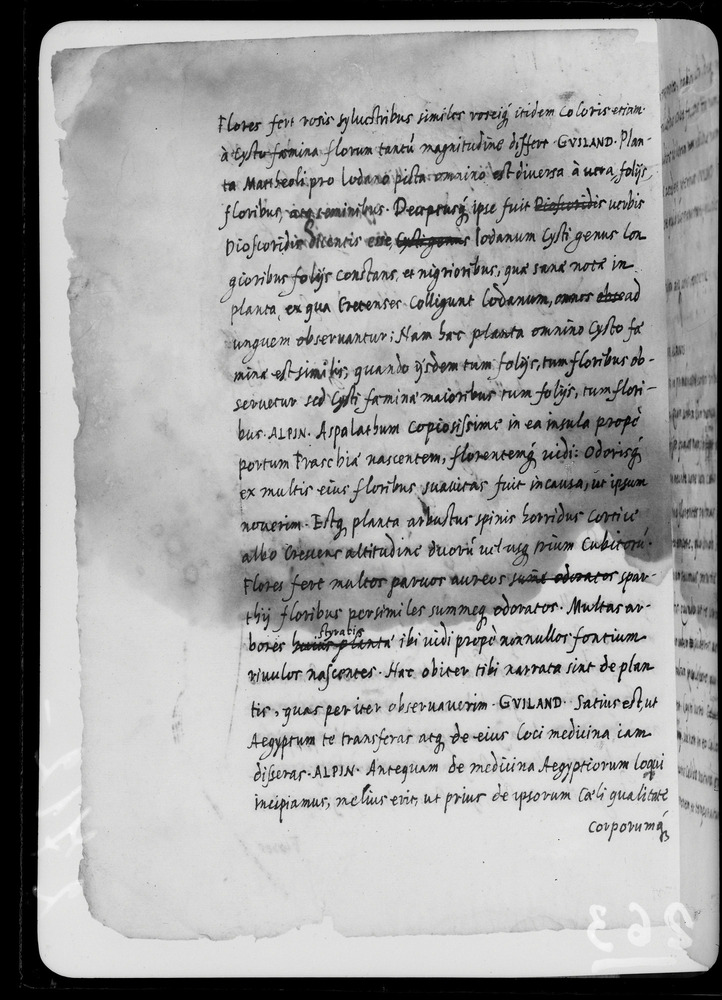 Flores fert rosis sylvestribus similes roseiq́ itidem coloris etiam.
à Cysto fæmina florum tantú magnitudine differt. GVILAND. Plan-
ta Mattheoli pro lodano picta omnino est diversa à vera, folijs,
floribus, ac seminibus. Deceptusq́ ipse fuit Dioscoridis verbis
Dioscoridis dicentis esse, Cysti genus lodanum Cysti genus lon
gioribus folijs constans, et nigrioribus, quæ sanè notæ in
planta, ex qua Cretenses colligunt lodanum, omnes obse ad
unguem observantur; Nam hæc planta omnino Cysto fæ
minæ est similis, quando ijsdem tum folijs, tum floribus ob-
servetur sed Cysti fæminæ maioribus tum folijs, tum flori-
bus. ALPIN. Aspalathum copiosissimè in ea insula propè
portum Fraschia nascentem, florentemq́ vidi: Odorisq́
ex multis eius floribus suavitas fuit in causa, ut ipsum
noverim. Estq planta arbustus spinis horridus cortice
albo crescens altitudine duorú vel usq trium Cubitorú.
Flores fert multos parvos aureos sunt odoratos spar-
thij floribus persimiles summeq odoratos. Multas ar-
styracis
bores huius planta ibi vidi propè nonnullos fontium
rivulos nascentes. Hæc obiter tibi narrata sint de plan
tis, quas per iter observaverim. GVILAND. Satius est, ut
Aegyptum te transferas atq de eius loci medicina iam
disseras. ALPIN. Antequam de medicina Aegyptiorum loqui
incipiamus, melius erit, ut prius de ipsorum cæli qualitate
corporumq́
263